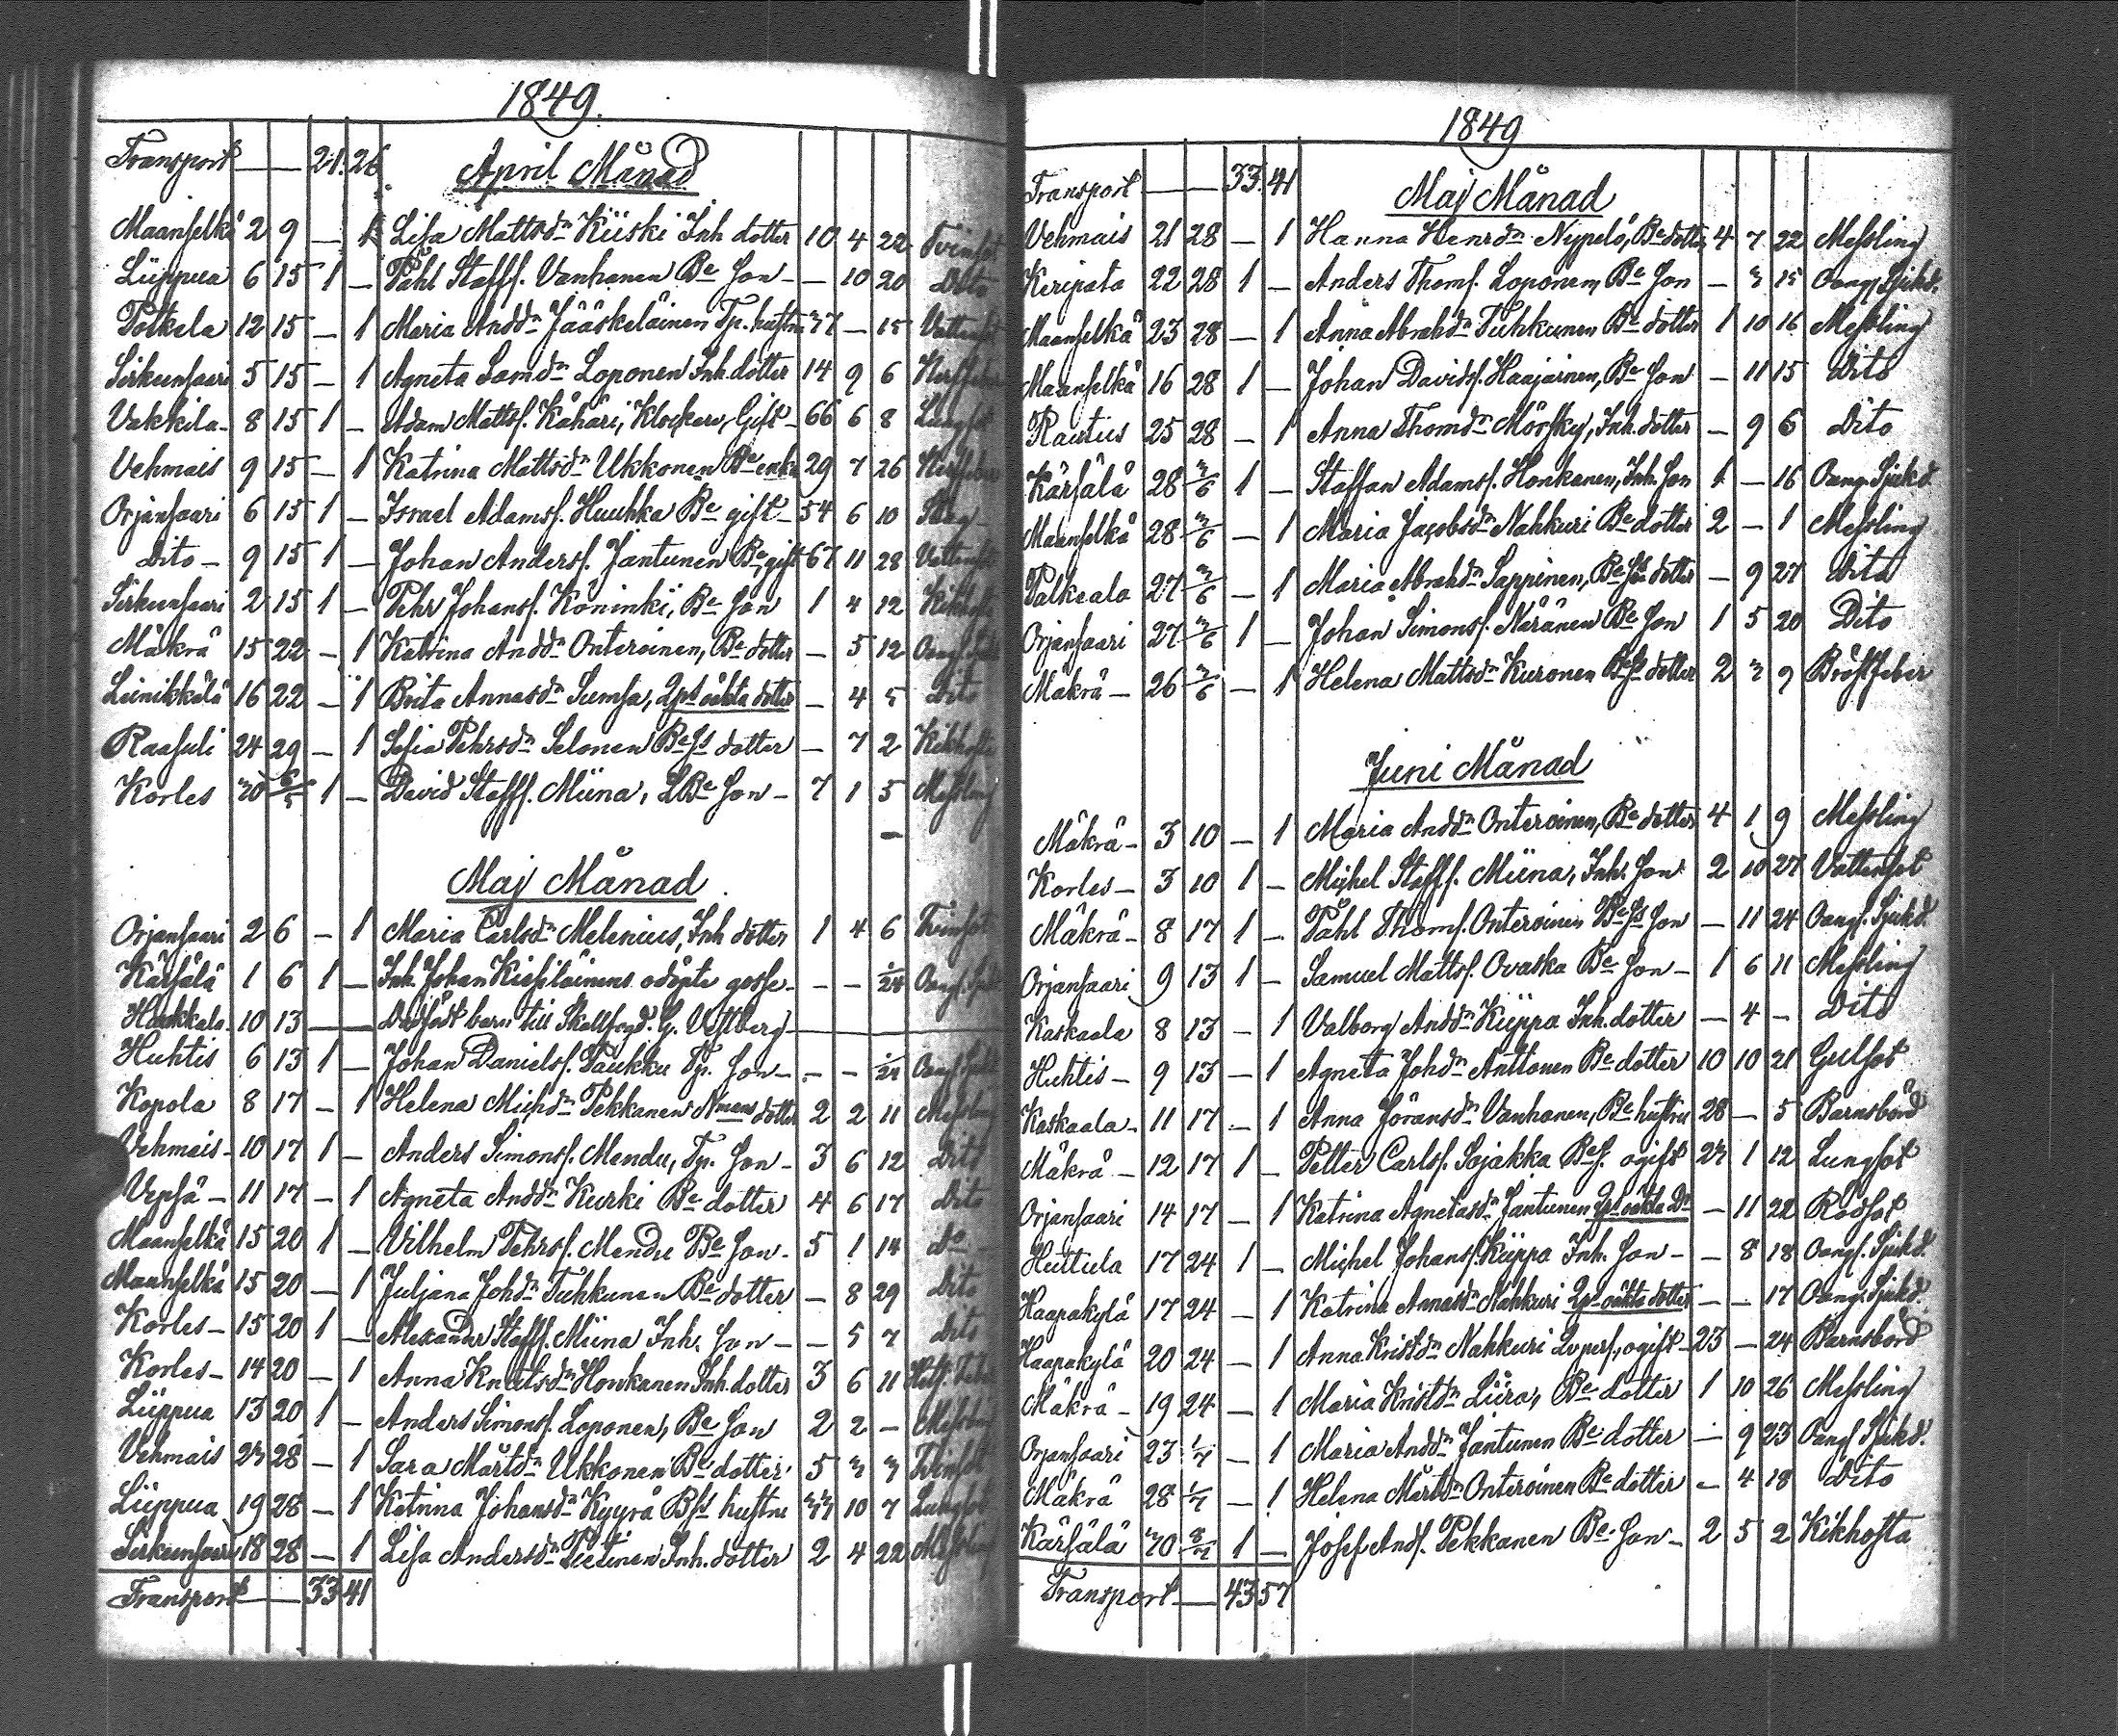 1849.
Transport — 21. 26. April Månad
Maanselkä 2 9 — 1 Lisa Mattsdr Kiiski Inh dotter 10 4 22 Tvinsot
Liippua 6 15 1 — Påhl Staffs. Vanhanen Be Son — — 10 20 Dito
Potkela 12 15 — 1 Maria Andsdr Jääskeläinen Tp. hustru 37 — 15
Sirkunsaari 5 15 — 1 Agneta Samdr Loponen Inh. dotter 14 9 6
Vakkila 8 15 1 — Adam Mattss. Kähäri, Klockare, Gift 66 6 8 Lungsot
Vehmais 9 15 — 1 Katrina Mattsdr Ukkonen Be enka 29 7 26
Orjansaari 6 15 1 — Israel Adamss. Huuhka Be gift — 54 6 10
Dito — 9 15 1 — Johan Anderss. Jantunen Be gift 67 11 28 Vattensot
Sirkunsaari 2 15 1 — Pehr Johanss. Köninki, Be Son 1 4 12 Kikhosta
Mäkrä 15 22 — 1 Katrina Andsdr Onteroinen, Be dotter — 5 12 Oang. Sjukd.
Leinikkälä 16 22 — 1 Brita Annasdr Sumsa, Qps oäkta dotter — 4 5 Dito
Raasuli 24 29 — 1 Sofia Pehrsdr Selonen Bess dotter — 7 2 Kikhosta
Korles 30 6/5 1 — David Staffs. Miina, LBe Son — 7 1 5 Messling
Maj Månad
Orjansaari 2 6 — 1 Maria Carlsdr Melenius, Inh dotter 1 4 6
Kärsälä 1 6 1 — Inh. Johan Kiesiläinens odöpte gosse — — — 1/24 Oang. Sjukd.
Haukkala 10 13 — Dödfödt barn till Skallfogd. G. Vestberg —
Huhtis 6 13 1 — Johan Daniels. Paukku Tp. Son — — — 1/24 Oang. Sjukd.
Kopola 8 17 — 1 Helena Michdr Pekkanen Nmans dotter 2 2 11 Messling
Vehmais 10 17 1 — Anders Simonss. Mendu, Tp. Son — 3 6 12 Dito
Vepsä — 11 17 — 1 Agneta Andsdr Kurki Be dotter 4 6 17 Dito
Maanselkä 15 20 1 — Vilhelm Pehrss. Mendu Be Son — 5 1 14 Do
Maanselkä 15 20 — 1 Juljana Johdr Tuhkunen Be dotter — 8 29 Dito
Korles — 15 20 1 — Alexander Staffs. Miina Inh. Son — — 5 7 Dito
Korles — 14 20 — 1 Anna Knutsdr Honkanen Inh. dotter 3 6 11
Liippua 13 20 1 — Anders Simonss. Loponen, Be Son 2 2 — Messling
Vehmais 23 28 — 1 Sara Mårtsdr Ukkonen Be dotter 5 3 3 Tvinsot
Liippua 19 28 — 1 Katrina Johansdr Kyyrä Bss hustru 33 10 7 Lungsot
Sirkunsaari 18 28 — 1 Lisa Andersdr Pietinen Inh. dotter 2 4 22 Messling
Transport — 33 41
1849
Transport — 33. 41 Maj Månad
Vehmais 21 28 — 1 Hanna Henrdr Nypelö, Be dotter 4 7 22 Messling
Kiripata 22 28 1 — Anders Thoms. Loponen, Be Son — 3 15 Oang. Sjukd.
Maanselkä 23 28 — 1 Anna Abrahdr Tuhkunen Be dotter 1 10 16 Messling
Maanselkä 16 28 1 — Johan Davids. Haajainen, Be Son — 11 15 Dito
Rautus 25 28 — 1 Anna Thomdr Mörsky, Inh. dotter — 9 6 Dito
Kärsälä 28 3/6 1 — Staffan Adamss. Honkanen, Inh. Son 1 — 16 Oang. Sjukd.
Maanselkä 28 3/6 — 1 Maria Jacobsdr Nahkuri Be dotter 2 — 1 Messling
Palkeala 27 3/6 — 1 Maria Abrahdr Seppinen, Be Sons dotter — 9 27 Dito
Orjansaari 27 3/6 1 — Johan Simonss. Näränen Be Son 1 5 20 Dito
Mäkrä — 26 3/6 — 1 Helena Mattsdr Kuronen Bess dotter 2 3 9 Bröstfeber
Juni Månad
Mäkrä — 3 10 — 1 Maria Andsdr Onteroinen, Be dotter 4 1 9 Messling
Korles — 3 10 1 — Michel Staffs. Miina, Inh. Son 2 10 27 Vattensot
Mäkrä — 8 17 1 — Påhl Thoms. Onteroinen Bess Son — 11 24 Oang. Sjukd.
Orjansaari 9 13 1 — Samuel Mattss. Ovaska Be Son — 1 6 11 Messling
Kaskaala 8 13 — 1 Valborg Andsdr Kiippa Inh. dotter — 4 — Dito
Huhtis — 9 13 — 1 Agneta Johdr Anttonen Be dotter 10 10 21 Gulsot
Kaskaala — 11 17 — 1 Anna Göransdr Vanhanen, Be hustru 28 — 5 Barnsbörd
Mäkrä — 12 17 1 — Petter Carlss. Sojakka Bes. ogift 23 1 12 Lungsot
Orjansaari 14 17 — 1 Katrina Agnetasdr Jantunen Qps oäkta Dr — 11 22 Rödsot
Huttula 17 24 1 — Michel Johanss. Kiippa Inh. Son — — 8 18 Oang. Sjukd.
Haapakylä 17 24 — 1 Katrina Annasdr Nahkuri Qps oäkta dotter — — 17 Oang. Sjukd.
Haapakylä 20 24 — 1 Anna Kristdr Nahkuri Qvpers., ogift 23 — 24 Barnsbörd
Mäkrä — 19 24 — 1 Maria Kristdr Liira, Be dotter 1 10 26 Messling
Orjansaari 23 1/7 — 1 Maria Andsdr Jantunen Be dotter — 9 23 Oang. Sjukd.
Mäkrä 28 1/7 — 1 Helena Mårtsdr Onteroinen Be dotter — 4 18 Dito
Kärsälä 30 8/7 1 — Josef Ands. Pekkanen Be Son — 2 5 2 Kikhosta
Transport — 43 57